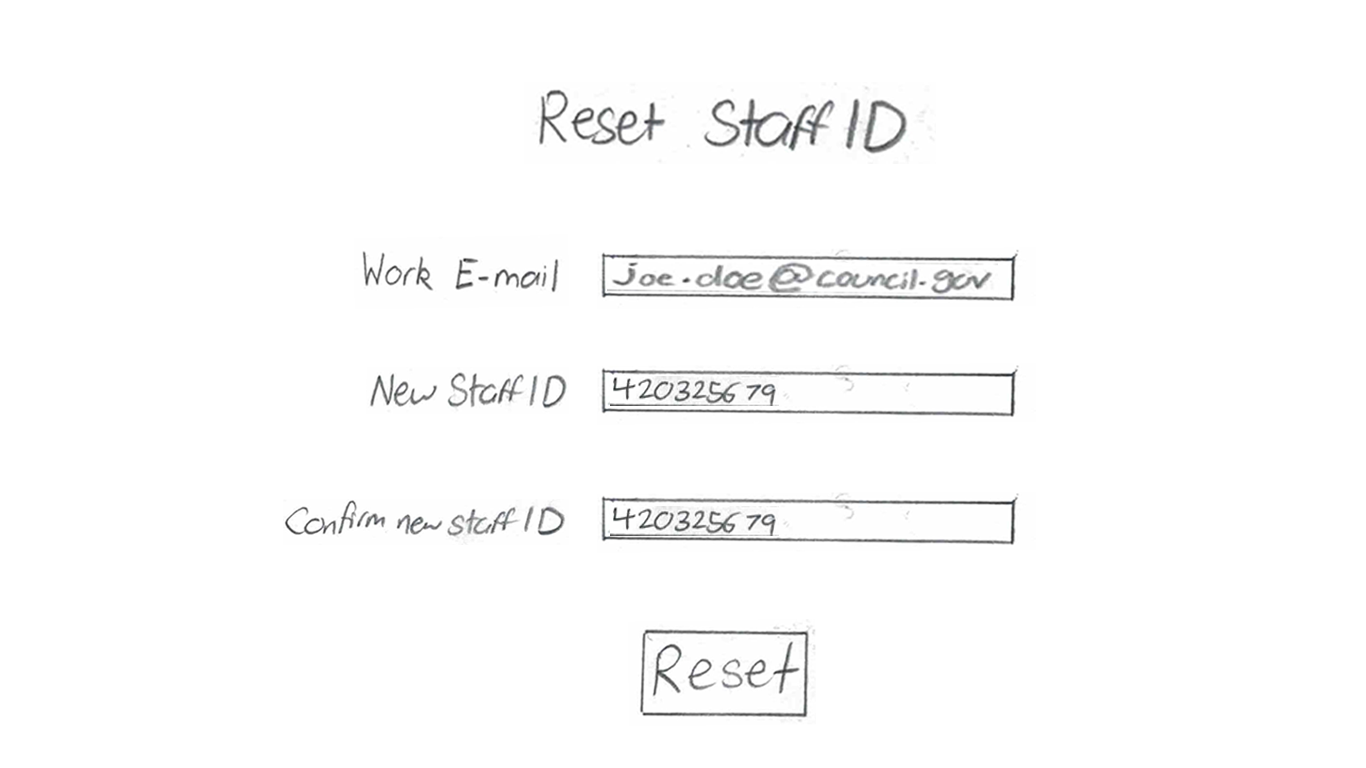 Reset Staff ID
Work E-mail joe.doe@council.gov
New Staff ID 420325679
Confirm new staff ID 420325679
Reset